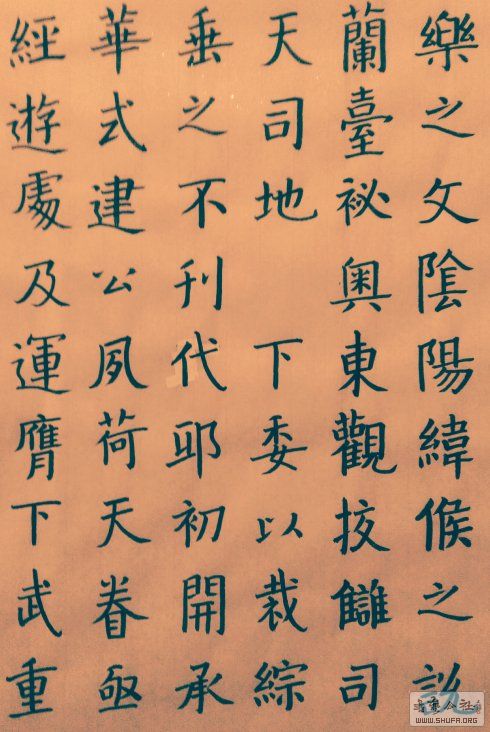 樂之文陰陽緯候之
蘭臺祕奧東觀挍讎司
天司地 下委以裁綜
垂之不刊代耶初開承
華式建公夙荷天眷亟
經遊處及運膺下武重
公社
WWW.SHUFA.ORG